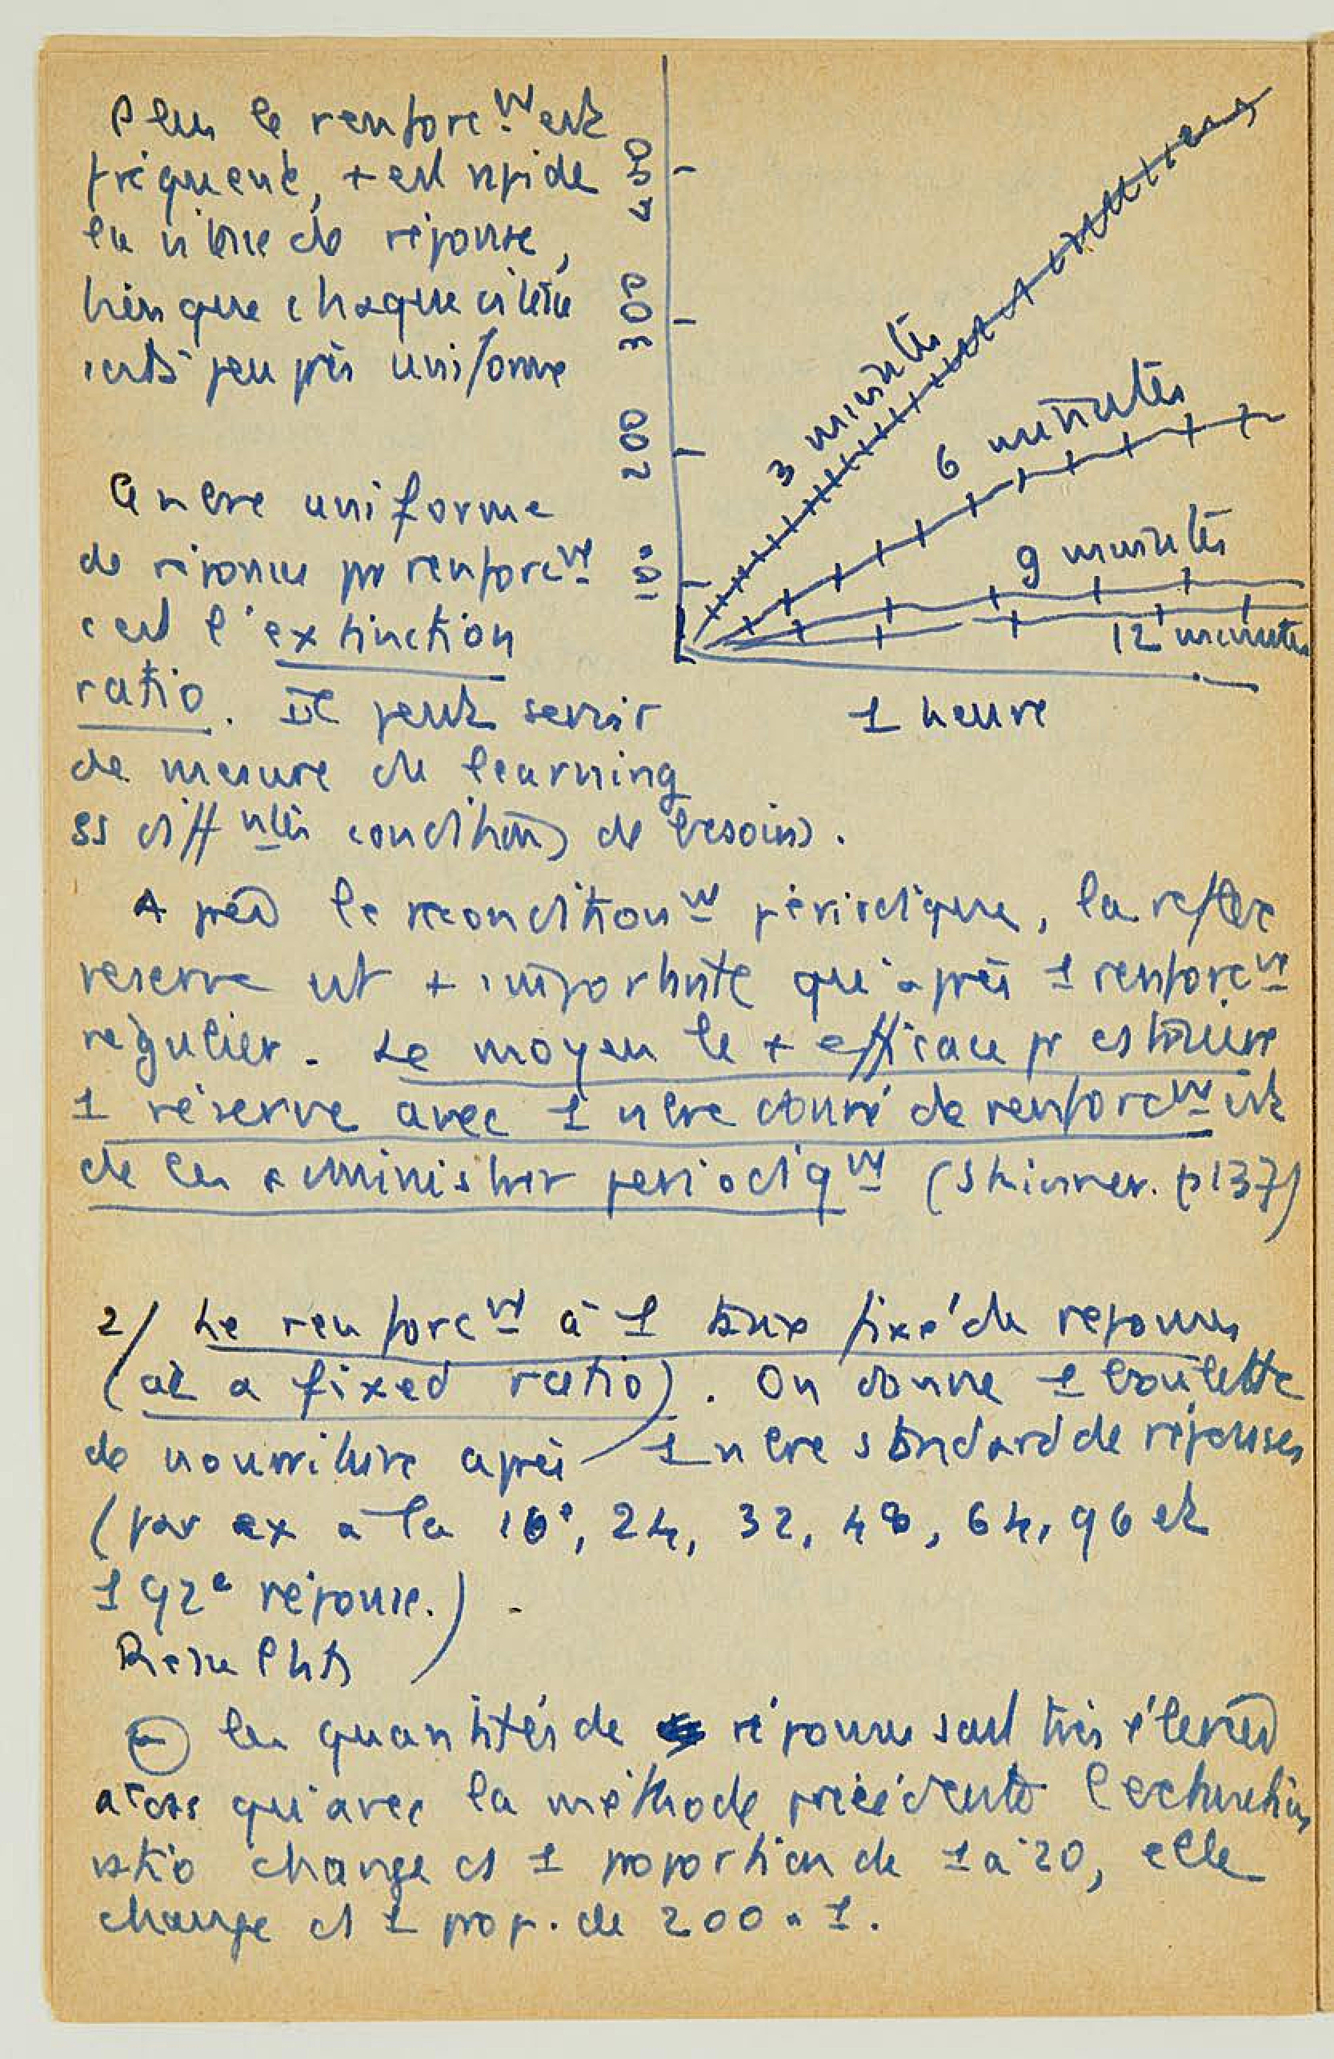 Plus le renforc.nt est
fréquent, + est rapide
la vitesse de réponse,
bien que chaque vitesse
soit à peu près uniforme
Ce nbre uniforme
de réponses pr renforcnt
c'est l'extinction
ratio. Il peut servir
de mesure du learning
ss diffntes conditions de besoins.
400
300
200
100
3 minutes
6 minutes
9 minutes
12 minutes
1 heure
Après le reconditionnt périodique, la reflex
reserve est + importante qu'après 1 renforcnt
régulier. Le moyen le + efficace pr
1 réserve avec 1 nbre donné de renforcnt est
de les administrer periodiqnt (Skinner. p137)
2/ Le renforcnt à 1 taux fixé de reponses
(at a fixed ratio). On donne 1 boulette
de nourriture après 1 nbre standard de réponses
(par ex a la 16e, 24, 32, 48, 64, 96 et
192e réponse.) -
Resultats
les quantités de réponses sont très élevées
alors qu'avec la méthode précédente l'extinction
ratio change ds 1 proportion de 1 a 20, elle
change ds 1 prop. de 200 a 1.